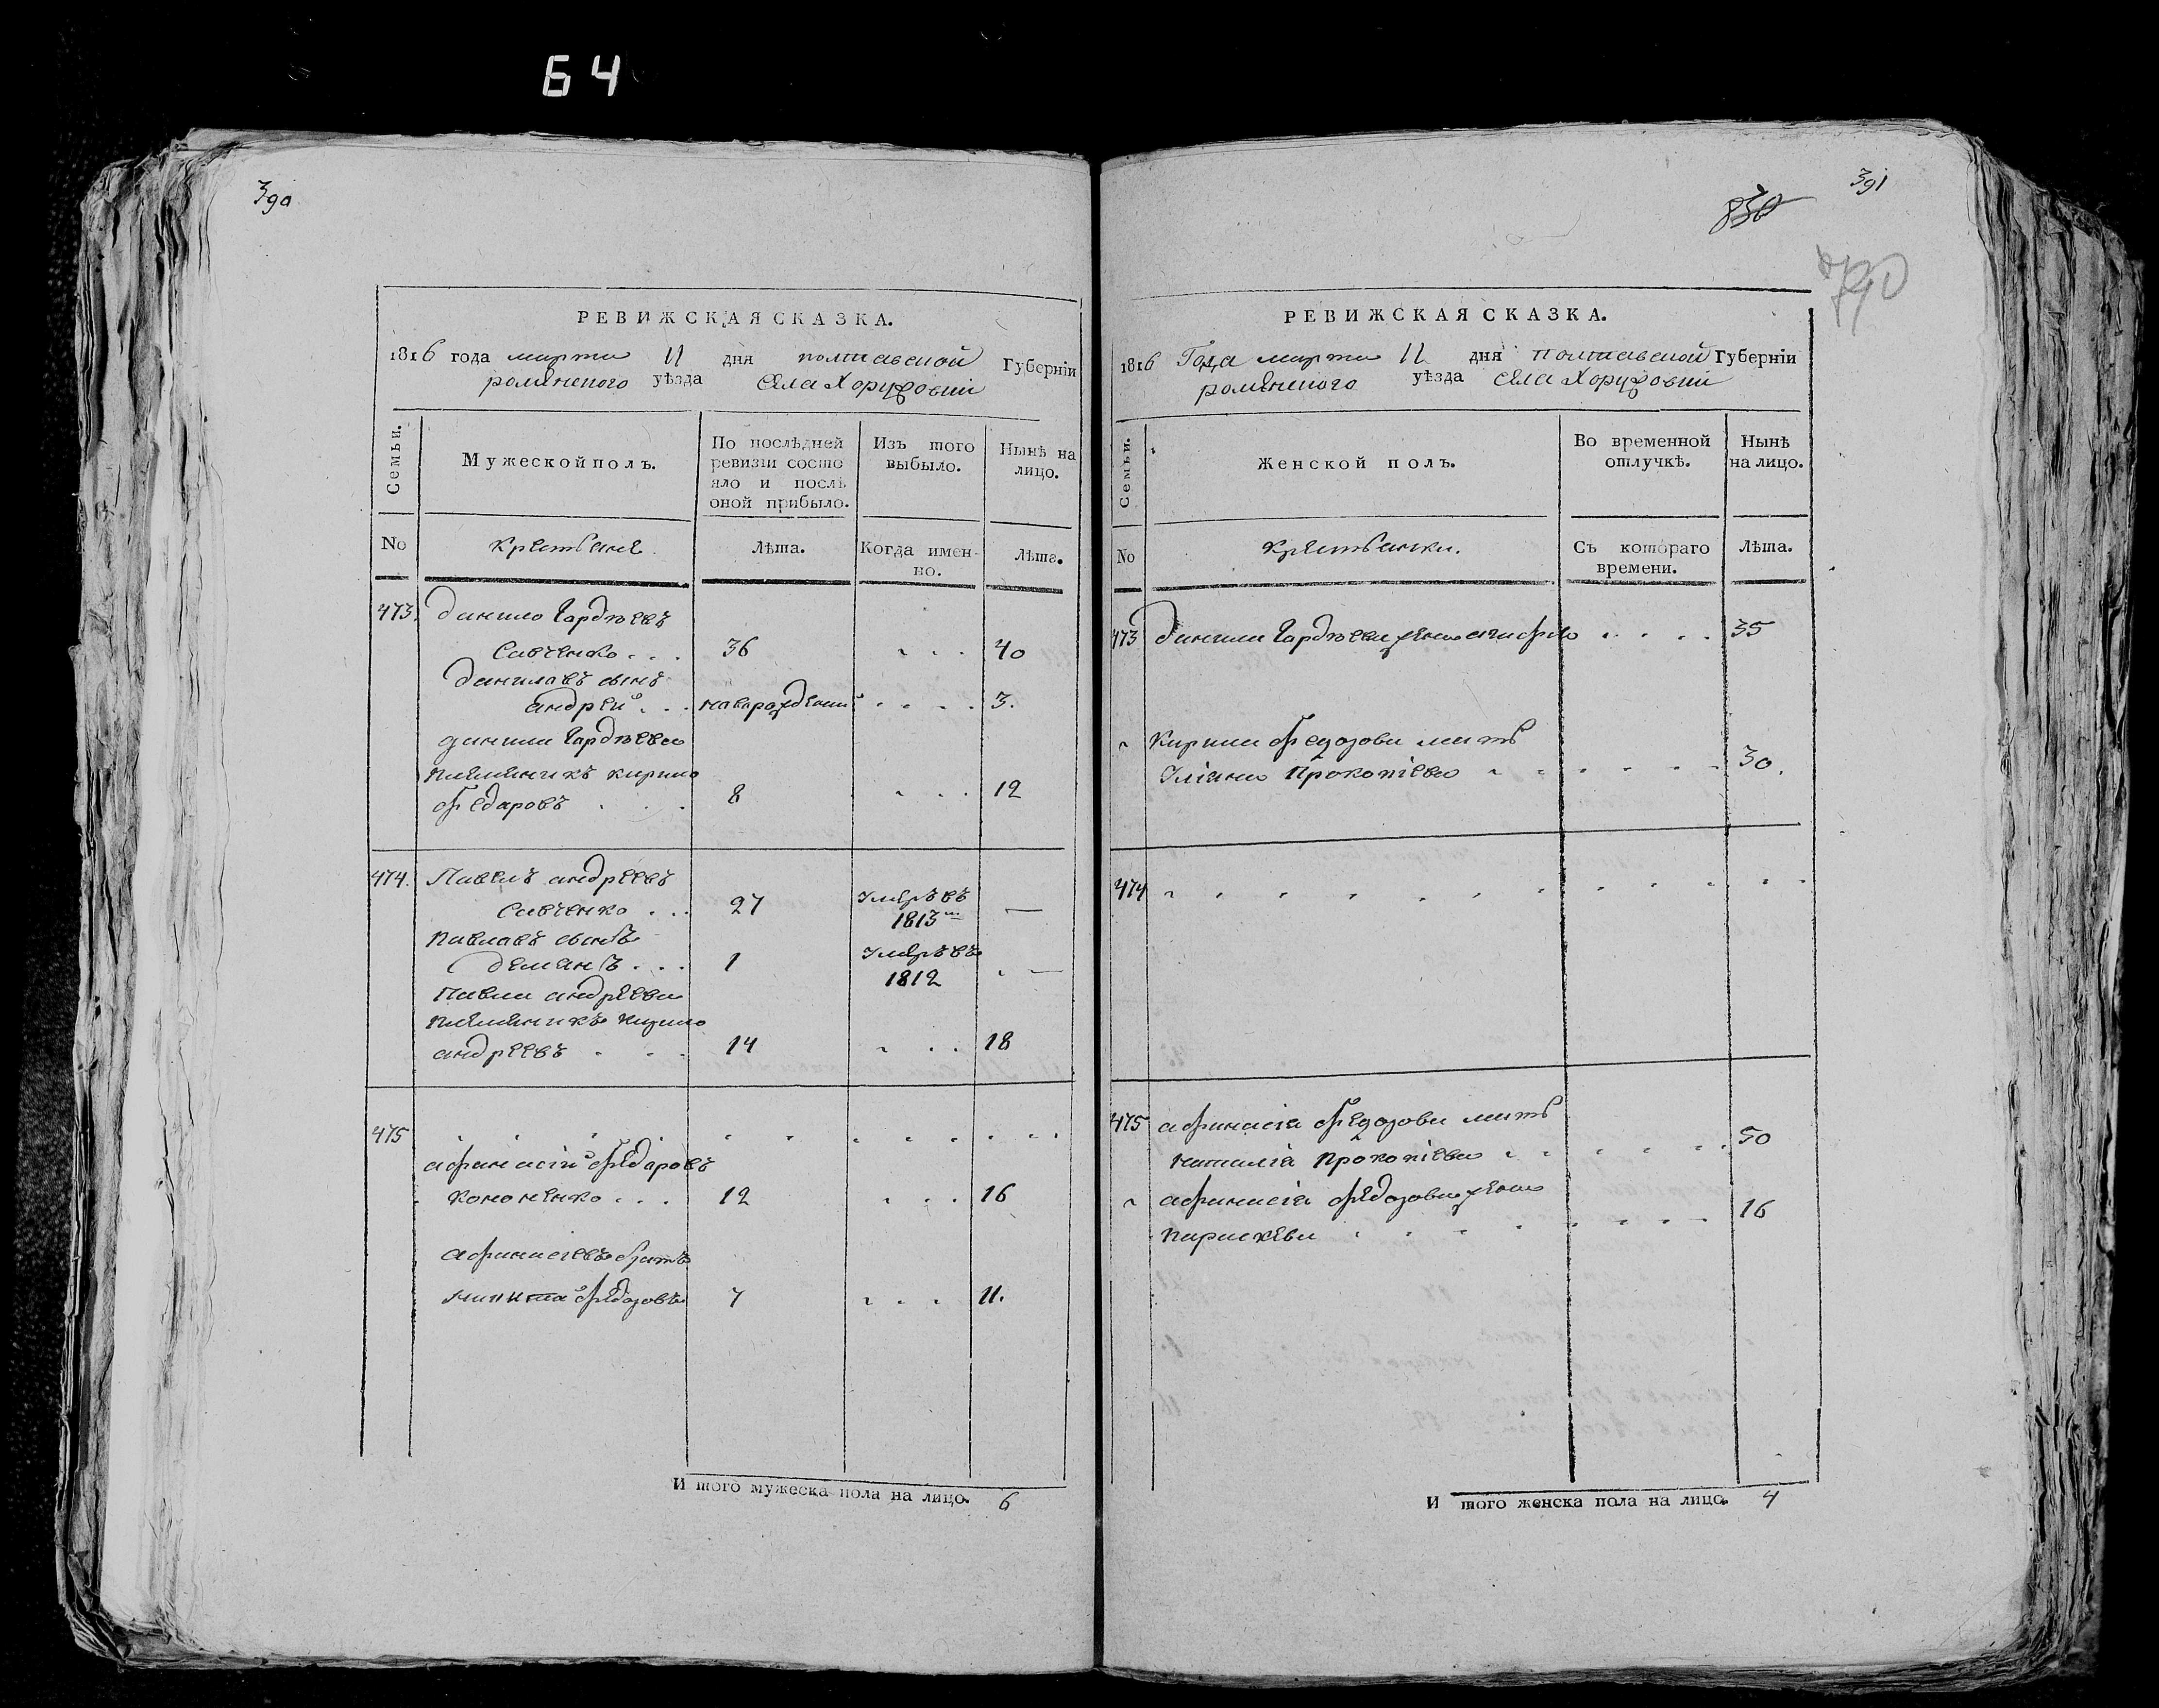 64
390
РЕВИЖСКАЯ СКАЗКА.
1816 года марта 11 дня полтавской Губерніи
роменского уѣзда села Хоружовки
Семьи.
Мужеской полъ.
По послѣдней ревизіи состояло и послѣ оной прибыло.
Изъ того выбыло.
Нынѣ на лицо.
No
Крестьяне
Лѣта.
Когда имен-
но.
Лѣта.
473. данило
Савченко . . . 36 . . . 40
данилавъ сынъ
андрей . . . наварожденни . . . . 3.
данила
племяникъ кирило
федаровъ . . . 8 . . . 12
474. Павелъ андреевъ
Савченко . . . 27 умеръ въ 1813м —
павлавъ сынъ
демянъ . . . 1 умеръ въ 1812 . —
павла андреева
племяникъ
андреевъ . . . 14 . . . 18
475 . . . . . . . . . . . .
афанасій федаровъ
кононенко . . . 12 . . . 16
афанасіевъ братъ
федоровъ 7 . . . 11.
И того мужеска пола на лицо. 6
391
830
790
РЕВИЖСКАЯ СКАЗКА.
1816 Года марта 11 дня полтавской Губерніи
роменского уѣзда села Хоружовки
Семьи.
Женской полъ.
Во временной отлучкѣ.
Нынѣ на лицо.
No
Крестьянки.
Съ котораго
времени.
Лѣта.
473 данила жена . . . . 35
кирила федорова мать
Уліана Прокопіева . . . . . . 30.
474 . . . . . . . . . . . .
475 афанасія федорова мать
наталія прокопіева . . . . . 50
афанасія федорова жена
параскева . . . . . . . . 16
И того женска пола на лицо. 4